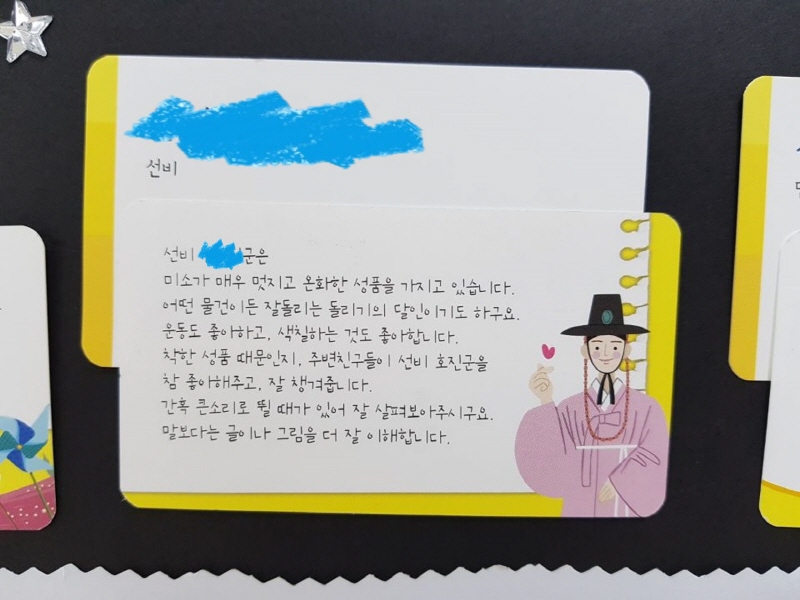 선비
선비 군은
미소가 매우 멋지고 온화한 성품을 가지고 있습니다.
어떤 물건이든 잘돌리는 돌리기의 달인이기도 하구요.
운동도 좋아하고, 색칠하는 것도 좋아합니다.
착한 성품 때문인지, 주변친구들이 선비 호진군을
참 좋아해주고, 잘 챙겨줍니다.
간혹 큰소리로 뛸 때가 있어 잘 살펴보아주시구요.
말보다는 글이나 그림을 더 잘 이해합니다.